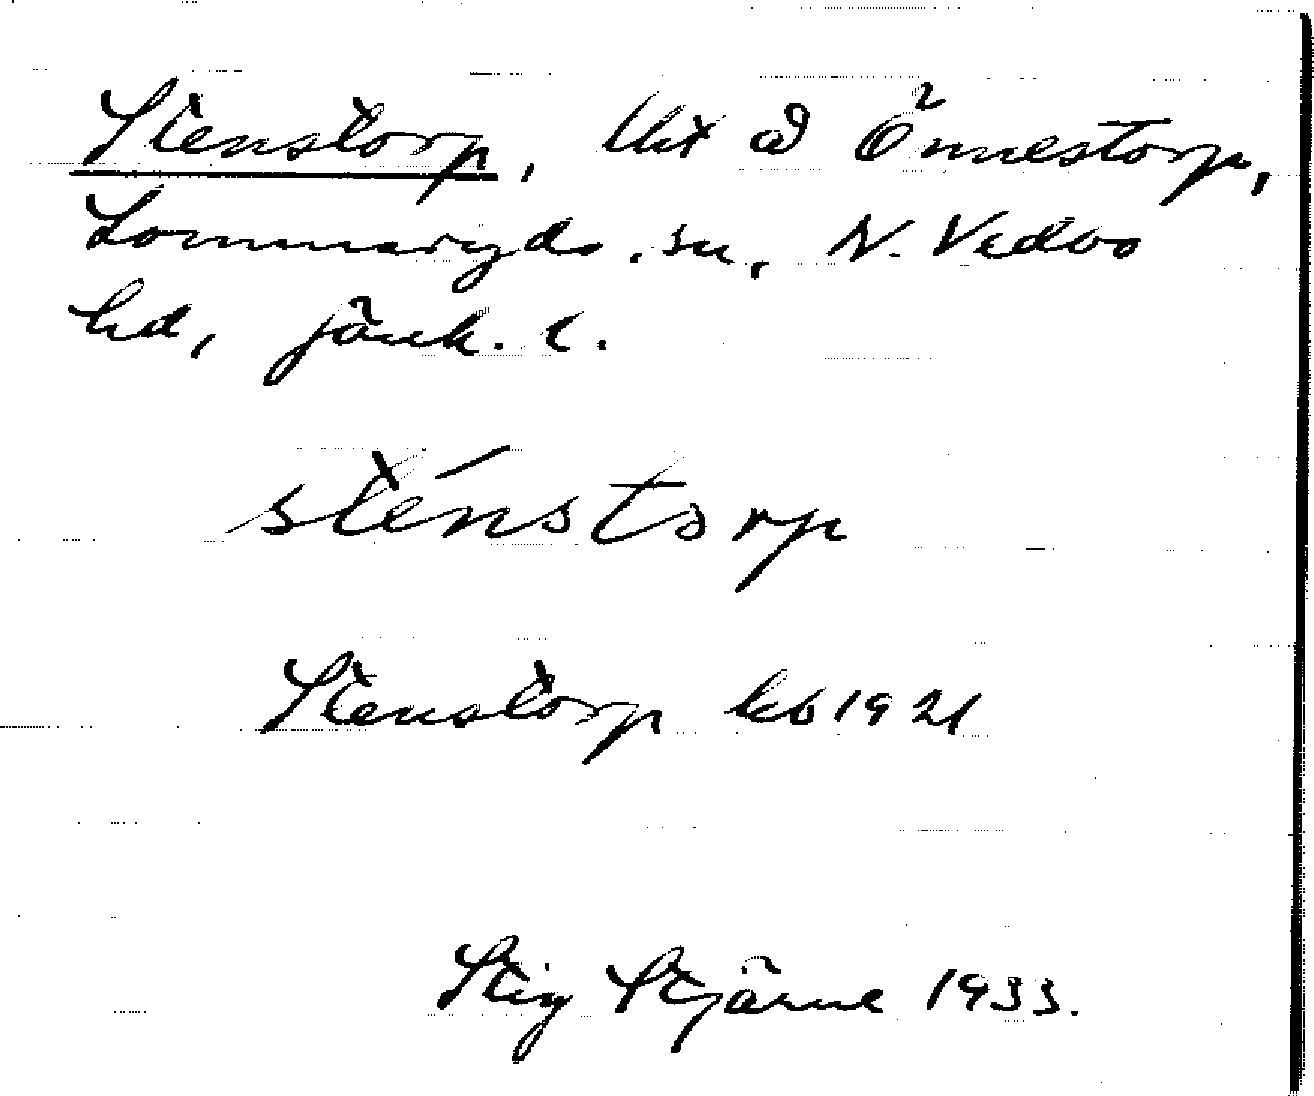 Stenstorp, tht å Önnestorp,
Lommaryds sn, N. Vedbo
hd, Jönk. l.
sténstorp
Stenstorp kb 1921
Stig Stjärne 1933.